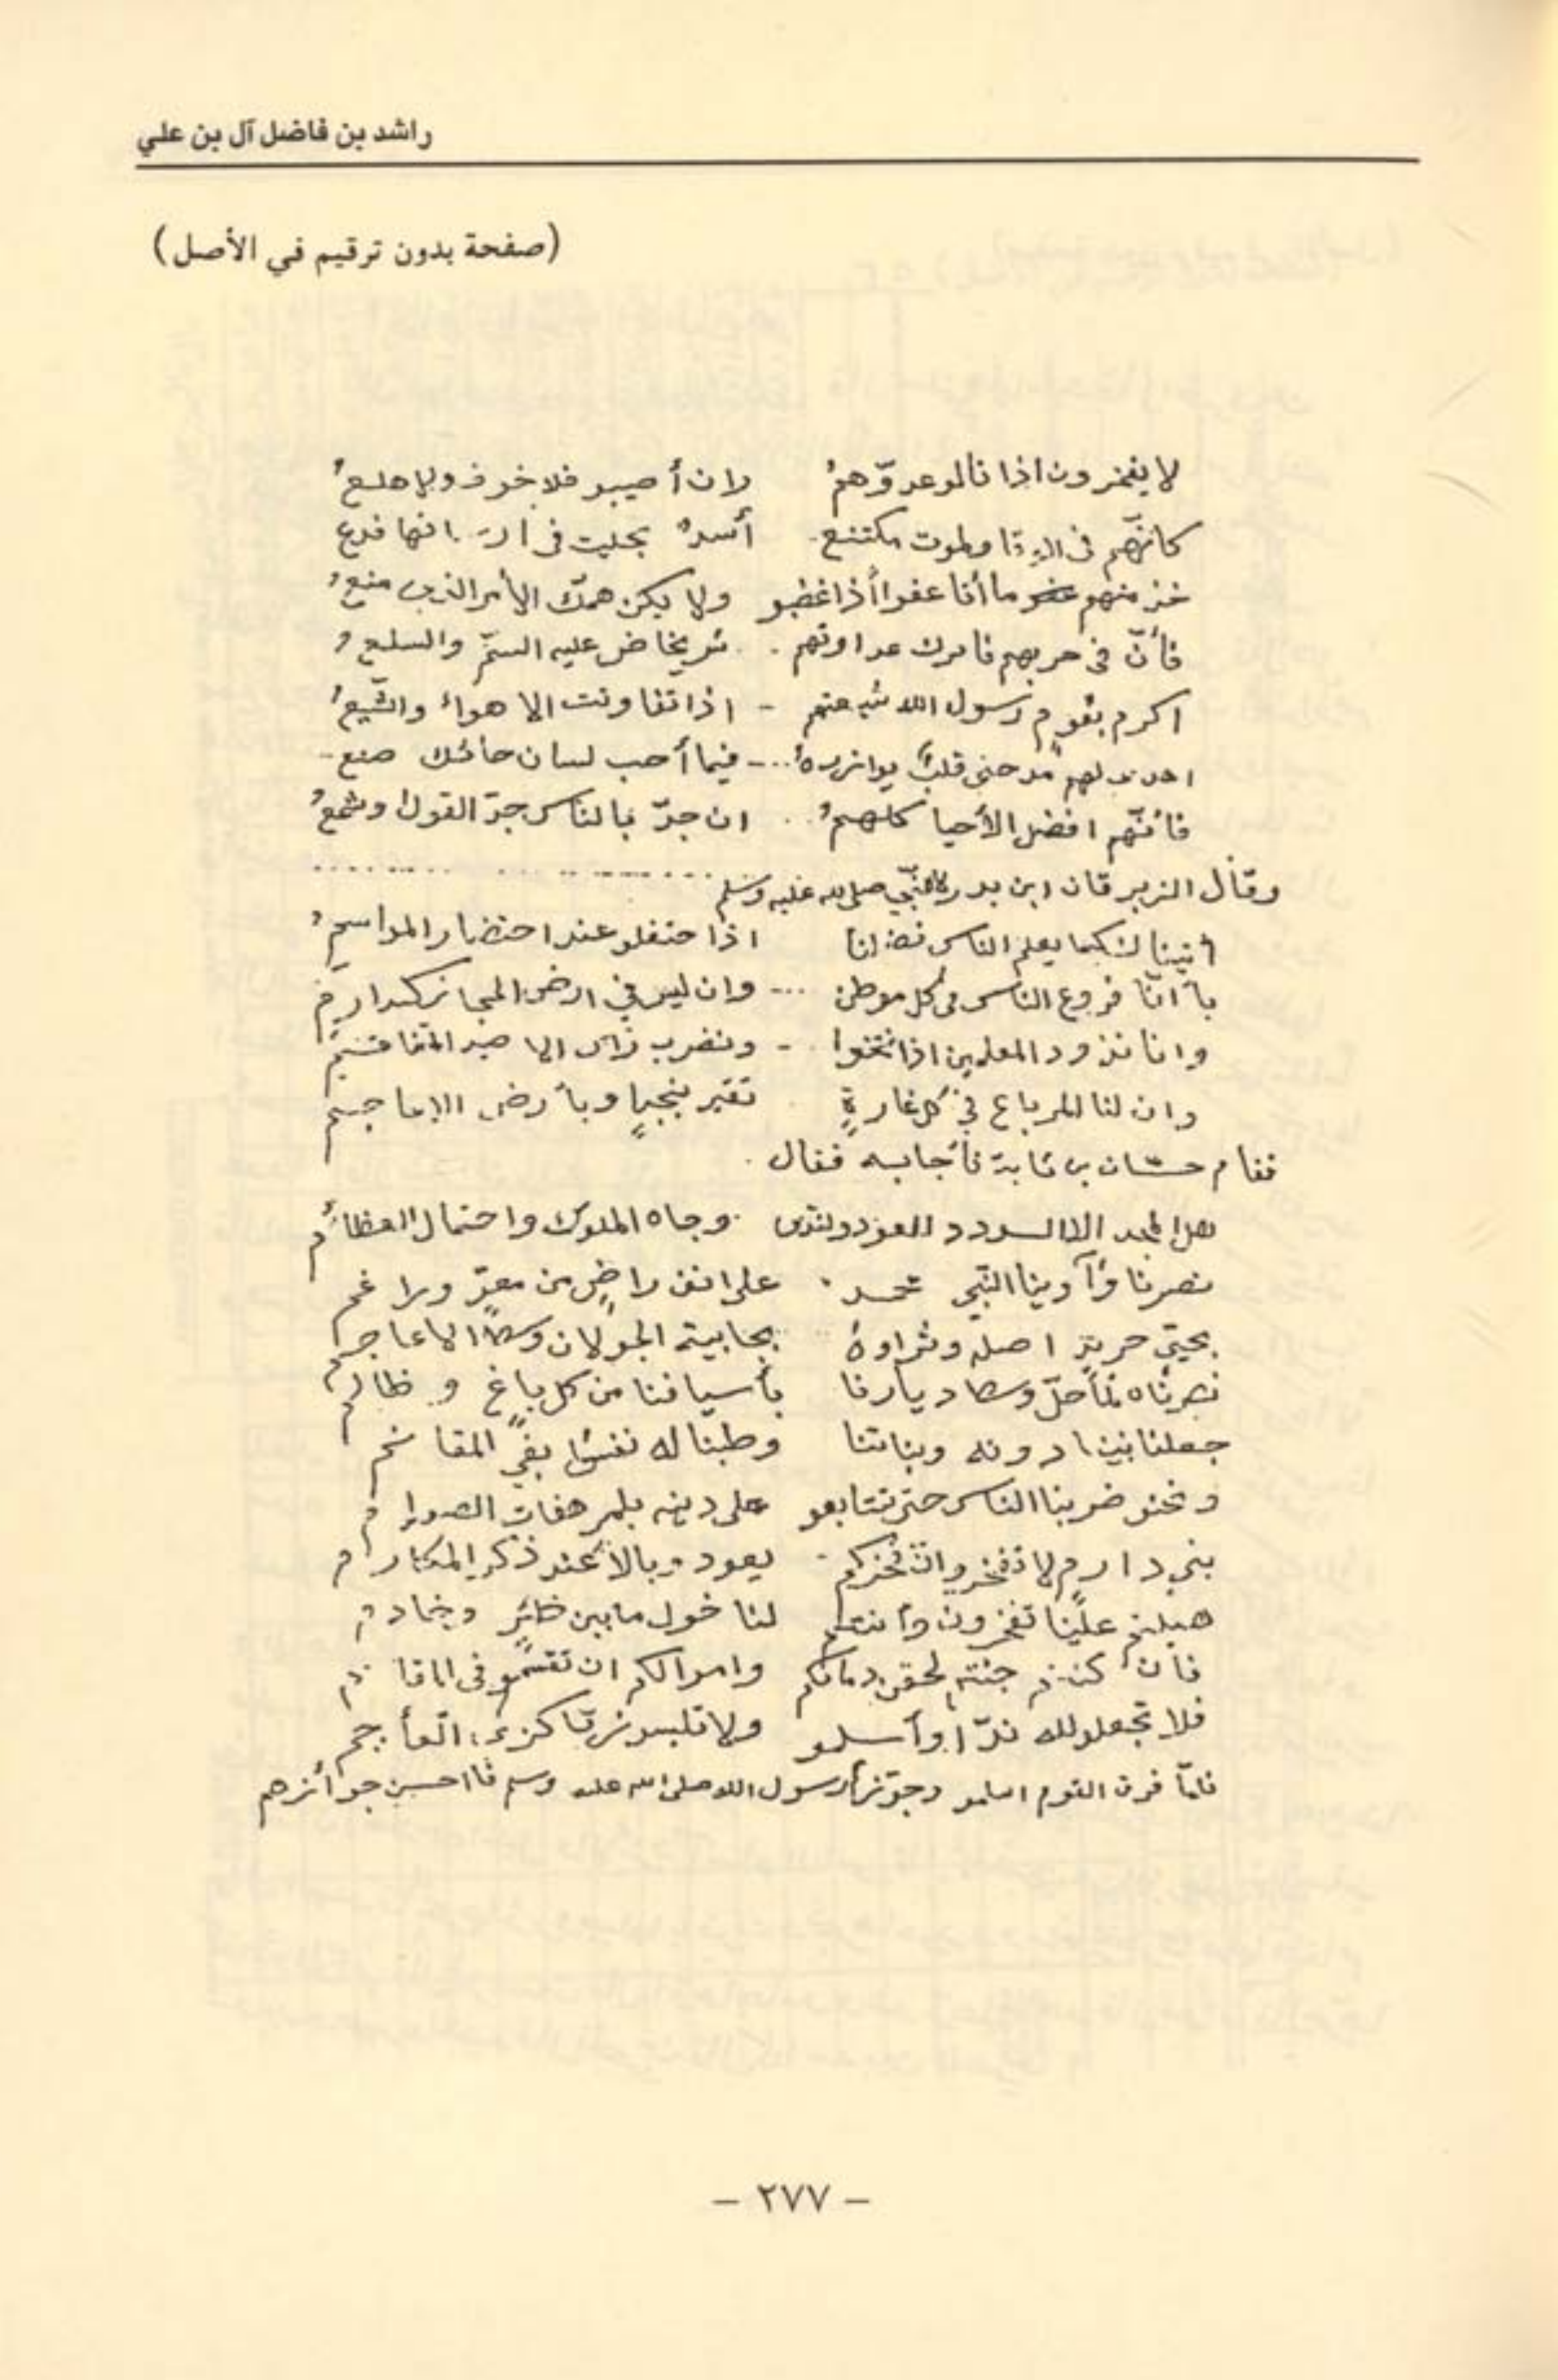 راشد بن فاضل آل بن علي
(صفحة بدون ترقيم في الأصل)
لا يفخرون اذا نالو عدوّهمُ وان أصيبو فلا خوف ولا هلعُ
كانّهم فى الوغا ولموت مكتنع أسدٌ بحليت فى ارساغها فدع
خذ منهم ما أتا عفواً أذا غضبو ولا يكن همّك الأمر الذى منعوُ
فأنّ فى حربهم فاترك عداوتهم شر يخاض عليه السمّ والسلعُ
اكرم بقومٍ رسول الله شيعتهم اذا تفاوتت الاهواءُ والشّيعُ
اهدى لهم مدحتى قلبٌ يوازرهُ فيما أحب لسان حائك صنع
فأنّهم افضل الأحيا كلهمُ ان جدّ بالناس جدّ القول وشمعوُ
وقال الزبرقان ابن بدر للنّبّي صلى الله عليه وسلم
أتيناك كيما يعلم الناس فضلنا اذا حتفلو عند احتضار المواسمُ
بأنّا فروع الناس فى كل موطن وان ليس في ارض الحجاز كدارم
وانا نذود المعلمين اذا نتخوا ونضرب راس الاصيد المتفاقم
وان لنا المرباع في كل غارةٍ تغير بنجدٍ وبأرض الاعاجم
فقام حسّان بن ثابت فأجابه فقال
هل المجد الا السودد العود ولندى وجاه الملوك واحتمال العظائُم
نصرنا وآوينا النّبّي محمد على انف راضٍ من معدّ وراغم
بحيّ حريدٍ اصله وثراوهُ بجابية الجولان وسط الاعاجم
نصرناه لمّا حلّ وسط ديارنا بأسيافنا من كل باغ و ظالم
جعلنا بنينا دونه وبناتنا وطبنا له نفسًا بفيّ المغانم
ونحنو ضربنا الناس حتى تتابعو على دينه بلمرهفات الصوارم
بني دارم لا تفخرو انّ فخركم يعود وبالاً عند ذكر المكارم
هبلتم علينا تفخرون وأنتم لنا خول ما بين ظئرٍ وخادم
فأن كنتم جئتم لحقن دمائكم واموالكم ان تقسمو فى المقاسم
فلا تجعلو لله ندّاً وأسلمو ولا تلبسو زيّا كزي الأعاجم
فلمّا فرق القوم اسلمو وجوّزهم رسول الله صلى الله عليه وسلم فااحسن جوأئزهم
- ٢٧٧ -